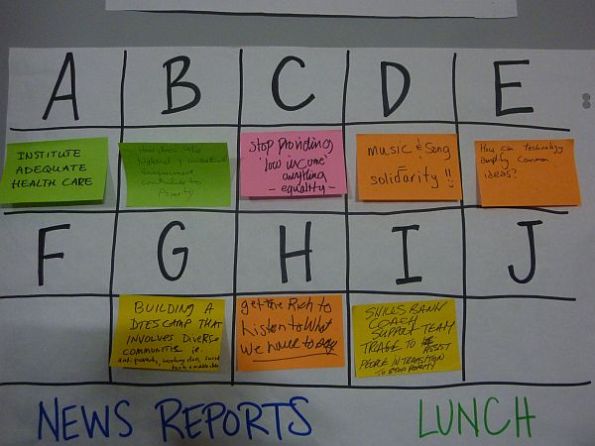 A B C D E
INSTITUTE
ADEQUATE
HEALTH CARE
How does the
contribute to
Poverty
Stop Providing
'low income'
anything
- equality -
music & Song
=
solidarity !!
How can technology
amplify common
ideas?
F G H I J
BUILDING A
DTES CAMP THAT
INVOLVES DIVERSE
COMMUNITIES ie.
anti-poverty,
get the Rich to
Listen to What
We have to say
SKILLS BANK
COACH
SUPPORT TEAM
TRADE TO ASSIST
PEOPLE IN TRANSITION
NEWS REPORTS LUNCH